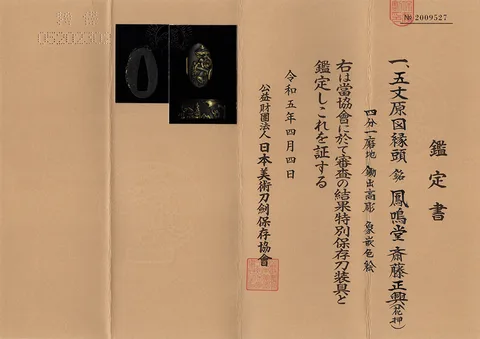 № 2009527
鑑定書
一、五丈原図縁頭 銘 鳳鳴堂 斎藤正興(花押)
四分一磨地 鋤出高彫 象嵌色絵
右は當協會に於て審査の結果特別保存刀装具と
鑑定しこれを証する
令和五年四月四日
公益財團法人 日本美術刀劍保存協會